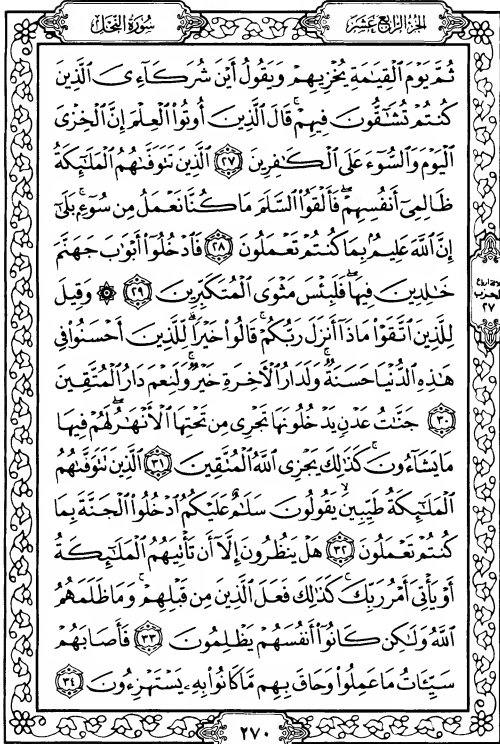 سُورَةُ النَّحْلِ
الجُزْءُ الرَّابِعُ عَشَرَ
ثُمَّ يَوْمَ ٱلْقِيَٰمَةِ يُخْزِيهِمْ وَيَقُولُ أَيْنَ شُرَكَآءِىَ ٱلَّذِينَ
كُنتُمْ تُشَٰٓقُّونَ فِيهِمْ ۚ قَالَ ٱلَّذِينَ أُوتُوا۟ ٱلْعِلْمَ إِنَّ ٱلْخِزْىَ
ٱلْيَوْمَ وَٱلسُّوٓءَ عَلَى ٱلْكَٰفِرِينَ ٢٧ ٱلَّذِينَ تَتَوَفَّىٰهُمُ ٱلْمَلَٰٓئِكَةُ
ظَالِمِىٓ أَنفُسِهِمْ ۖ فَأَلْقَوُا۟ ٱلسَّلَمَ مَا كُنَّا نَعْمَلُ مِن سُوٓءٍۭ ۚ بَلَىٰٓ
إِنَّ ٱللَّهَ عَلِيمٌۢ بِمَا كُنتُمْ تَعْمَلُونَ ٢٨ فَٱدْخُلُوٓا۟ أَبْوَٰبَ جَهَنَّمَ
خَٰلِدِينَ فِيهَا ۖ فَلَبِئْسَ مَثْوَى ٱلْمُتَكَبِّرِينَ ٢٩ ۞ وَقِيلَ
لِلَّذِينَ ٱتَّقَوْا۟ مَاذَآ أَنزَلَ رَبُّكُمْ ۚ قَالُوا۟ خَيْرًا ۗ لِّلَّذِينَ أَحْسَنُوا۟ فِى
هَٰذِهِ ٱلدُّنْيَا حَسَنَةٌ ۚ وَلَدَارُ ٱلْءَاخِرَةِ خَيْرٌ ۚ وَلَنِعْمَ دَارُ ٱلْمُتَّقِينَ
٣٠ جَنَّٰتُ عَدْنٍ يَدْخُلُونَهَا تَجْرِى مِن تَحْتِهَا ٱلْأَنْهَٰرُ ۖ لَهُمْ فِيهَا
مَا يَشَآءُونَ ۚ كَذَٰلِكَ يَجْزِى ٱللَّهُ ٱلْمُتَّقِينَ ٣١ ٱلَّذِينَ تَتَوَفَّىٰهُمُ
ٱلْمَلَٰٓئِكَةُ طَيِّبِينَ ۙ يَقُولُونَ سَلَٰمٌ عَلَيْكُمُ ٱدْخُلُوا۟ ٱلْجَنَّةَ بِمَا
كُنتُمْ تَعْمَلُونَ ٣٢ هَلْ يَنظُرُونَ إِلَّآ أَن تَأْتِيَهُمُ ٱلْمَلَٰٓئِكَةُ
أَوْ يَأْتِىَ أَمْرُ رَبِّكَ ۚ كَذَٰلِكَ فَعَلَ ٱلَّذِينَ مِن قَبْلِهِمْ ۚ وَمَا ظَلَمَهُمُ
ٱللَّهُ وَلَٰكِن كَانُوٓا۟ أَنفُسَهُمْ يَظْلِمُونَ ٣٣ فَأَصَابَهُمْ
سَيِّـَٔاتُ مَا عَمِلُوا۟ وَحَاقَ بِهِم مَّا كَانُوا۟ بِهِۦ يَسْتَهْزِءُونَ ٣٤
الحزب
٢٧
٢٧٠